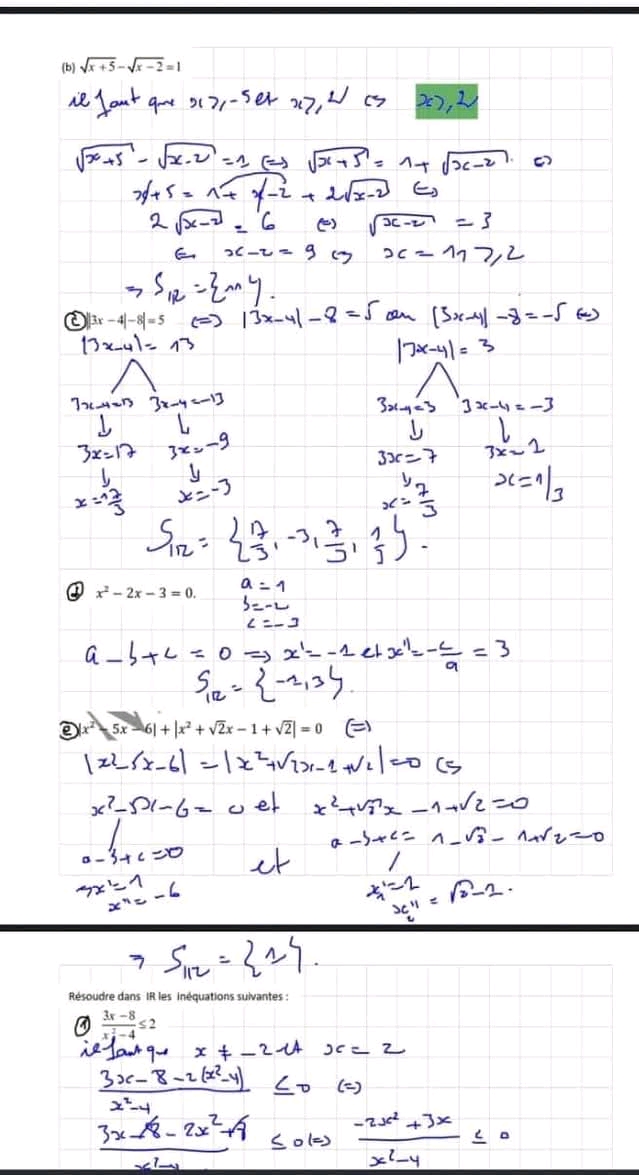 (b) √x+5 − √x−2 = 1
il faut que x ≥ -5 et x ≥ 2 ⇔ x ≥ 2
√x+5 − √x-2 = 1 ⇔ √x+5 = 1+ √x-2 ⇔
x+5 = 1+ x-2 + 2√x-2 ⇔
2√x-2 = 6 ⇔ √x-2 = 3
⇔ x-2 = 9 ⇔ x = 11 ≥ 2
⇒ S_IR = {11}.
c ||3x − 4| − 8| = 5 ⇔ |3x-4| - 8 = 5 ou |3x-4| - 8 = -5 ⇔
|3x-4| = 13 |3x-4| = 3
3x-4=13 3x-4=-13 3x-4=3 3x-4=-3
↓ ↓ ↓ ↓
3x=17 3x=-9 3x=7 3x=1
↓ ↓ ↓
x=17/3 x=-3 x=7/3 x=1/3
S_IR = {17/3, -3, 7/3, 1/3}.
d x² − 2x − 3 = 0. a = 1
b=-2
c=-3
a-b+c = 0 ⇒ x'=-1 et x''=-c/a = 3
S_IR = {-1,3}.
e |x² − 5x − 6| + |x² + √2x − 1 + √2| = 0 ⇔
|x²-5x-6| = |x²+√2x-1+√2|=0 ⇔
x²-5x-6 = 0 et x²+√2x -1+√2=0
a-b+c=0 et a-b+c= 1-√2-1+√2=0
⇒x'=1
x''=-6 x''=√2-1.
⇒ S_IR = {1}.
Résoudre dans IR les inéquations suivantes :
1 3x −8/x² −4 ≤ 2
il faut que x ≠ -2 et x = 2
3x-8-2(x²-4)/x²-4 ≤ 0 ⇔
3x-8-2x²+8/x²-4 ≤ 0 ⇔ -2x²+3x/x²-4 ≤ 0